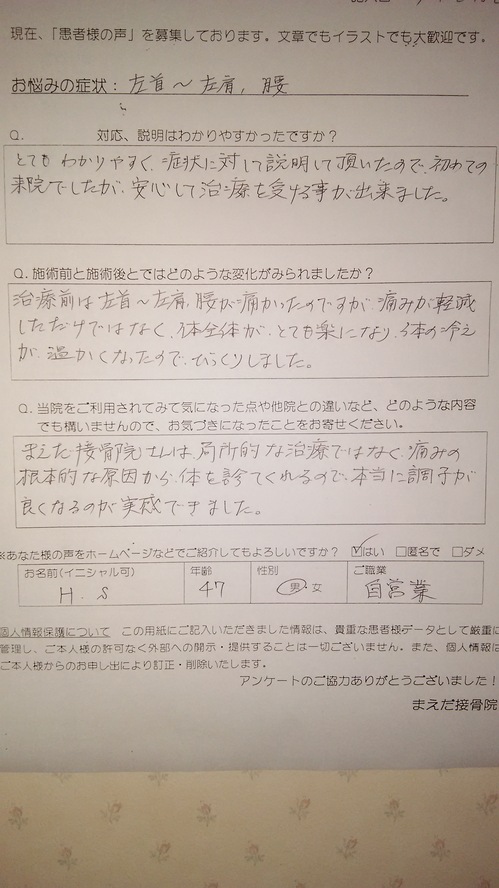 現在、「患者様の声」を募集しております。文章でもイラストでも大歓迎です。
お悩みの症状：左首～左肩、腰
Q. 対応、説明はわかりやすかったですか？
とてもわかりやすく、症状に対して説明して頂いたので、初めての
来院でしたが、安心して治療を受ける事が出来ました。
Q. 施術前と施術後とではどのような変化がみられましたか？
治療前は左首～左肩、腰が痛かったのですが、痛みが軽減
しただけではなく、体全体が、とても楽になり、体の冷え
が、温かくなったので、びっくりしました。
Q. 当院をご利用されてみて気になった点や他院との違いなど、どのような内容
でも構いませんので、お気づきになったことをお寄せください。
まえだ接骨院さんは、局所的な治療ではなく、痛みの
根本的な原因から、体を診てくれるので、本当に調子が
良くなるのが実感できました。
※あなた様の声をホームページなどでご紹介してもよろしいですか？ ☑はい □匿名で □ダメ
お名前(イニシャル可) 年齢 性別 ご職業
H. S 47 男・女 自営業
個人情報保護について この用紙にご記入いただきました情報は、貴重な患者様データとして厳重に
管理し、ご本人様の許可なく外部への開示・提供することは一切ございません。また、個人情報は
ご本人様からのお申し出により訂正・削除いたします。
アンケートのご協力ありがとうございました！
まえだ接骨院